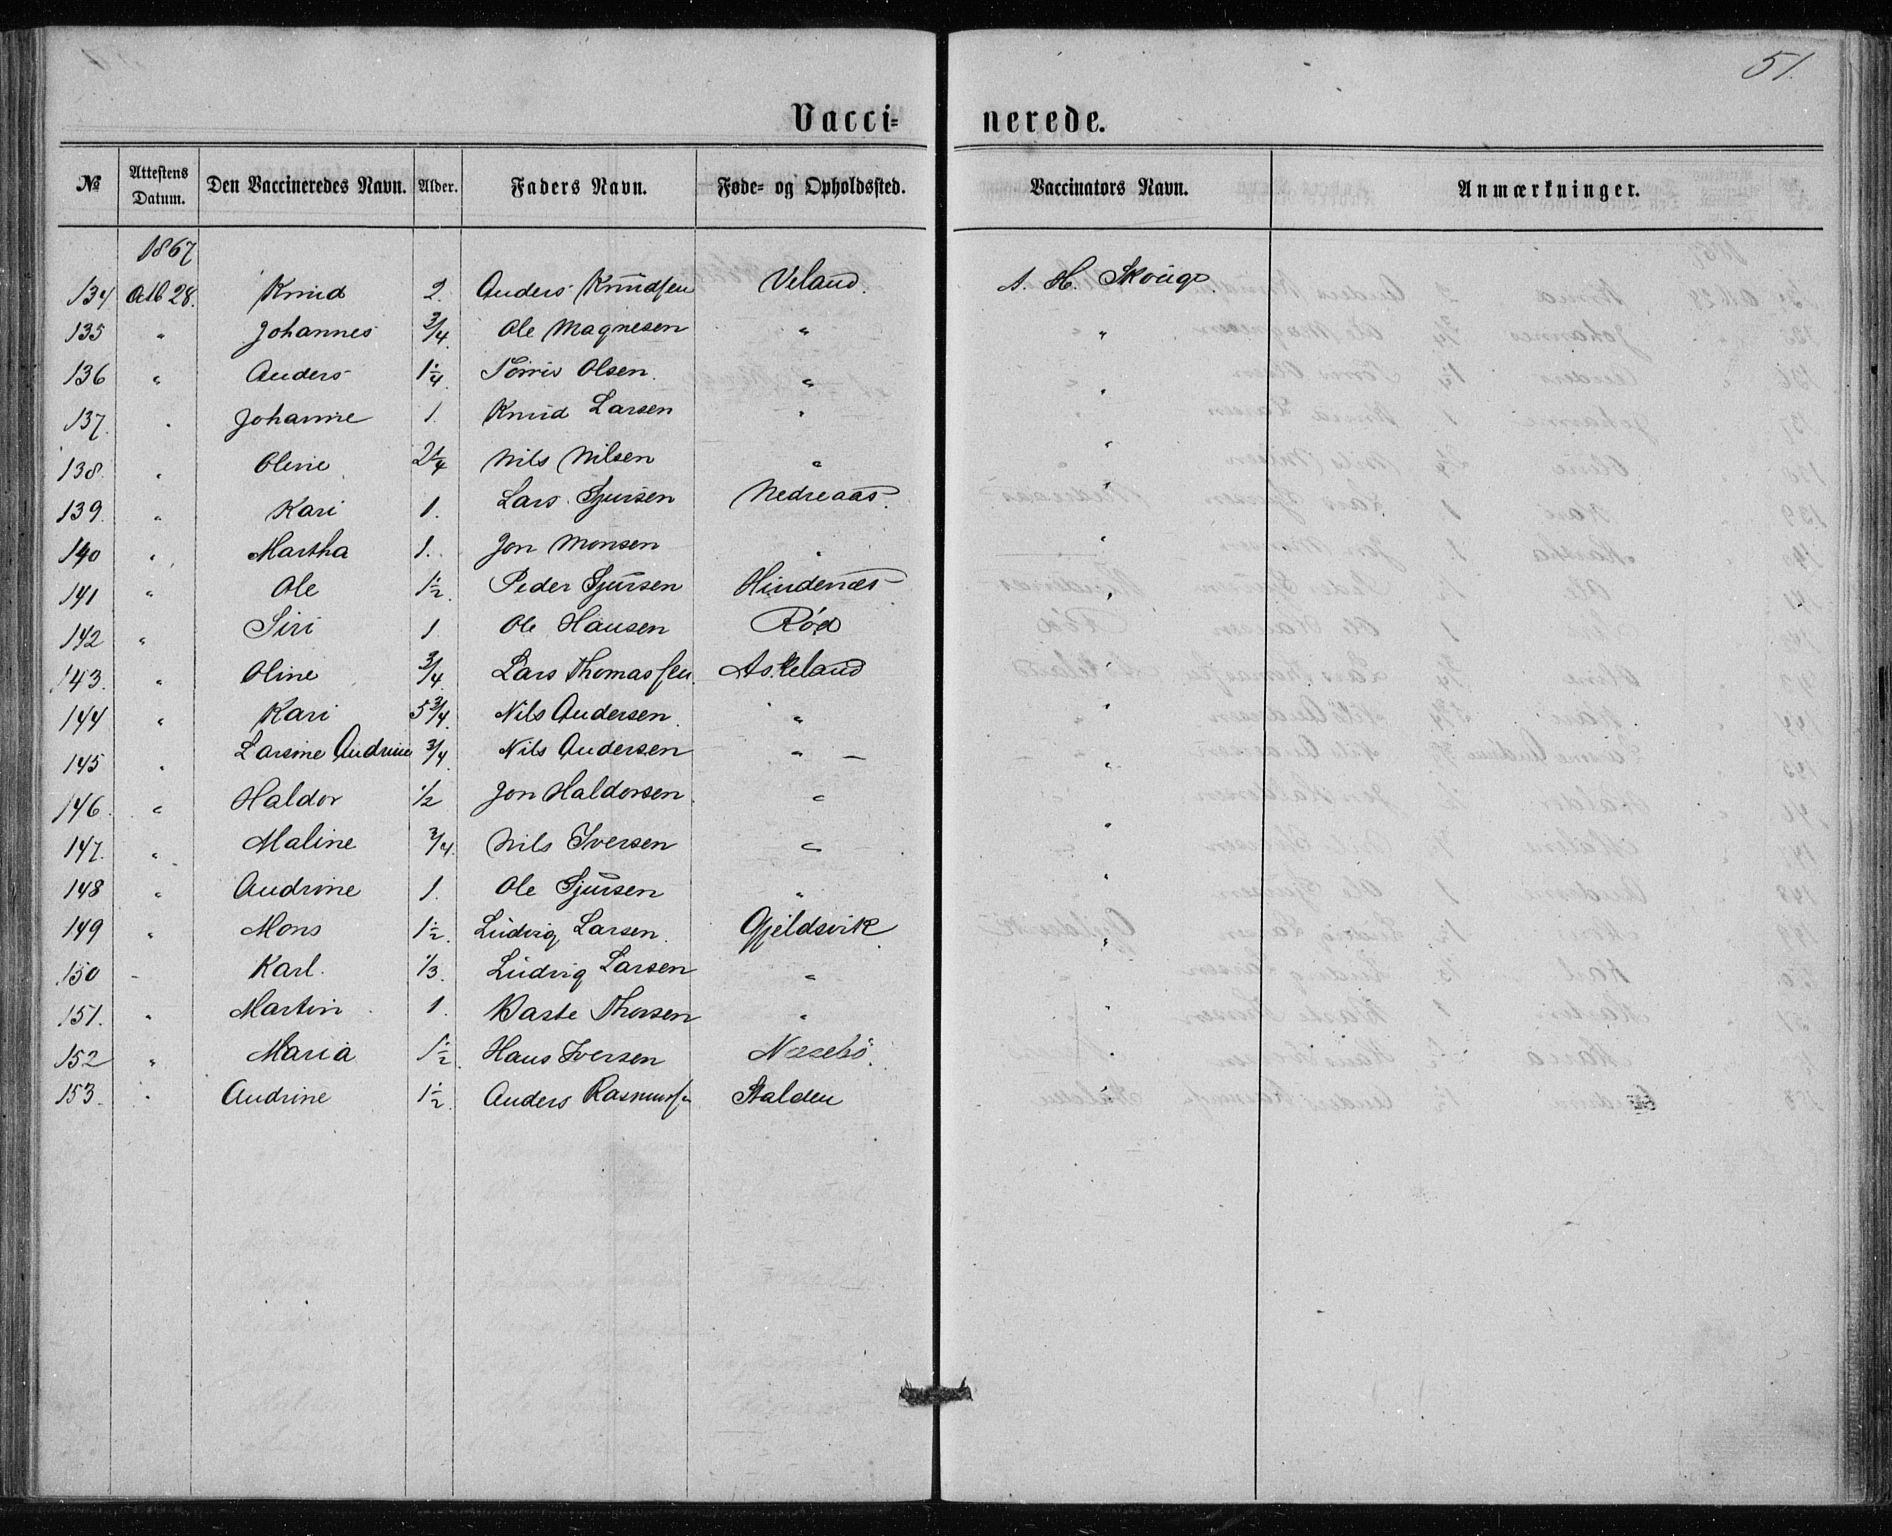 51.
Vacci- nerede.
No Attestens Datum. Den Vaccineredes Navn. Alder. Faders Navn. Føde- og Opholdssted. Vaccinators Navn. Anmærkninger.
1867
134 28. Knud 2. Anders Knudsen Veland. A. H. Skouge.
135 " Johannes 3/4 Ole Magnesen " "
136 " Anders 1 1/4 Olsen. " "
137. " Johanne 1. Knud Larsen " "
138. " Oline 2 1/4 Nils Nilsen " "
139. " Kari 1. Lars Sjursen Nedreaas. "
140 " Martha 1. Jon Monsen " "
141 " Ole 1 1/2. Peder Sjursen Hindenæs "
142 " Siri 1 Ole Hansen Rød "
143. " Oline 3/4. Lars Thomassen. Askeland "
144 " Kari 5 3/4. Nils Andersen. " "
145 " Larsine Andrine 3/4. Nils Andersen " — "
146. " Haldor 1/2 Jon Haldorsen. " "
147. " Maline 3/4. Nils Iversen " "
148 " Andrine 1. Ole Sjursen " "
149 " Mons 1 1/2. Ludvig Larsen. Gjeldsvik "
150 - Karl. 1/3. Ludvig Larsen " "
151. " Martin 1. Thorsen " "
152 " Maria 1 1/2. Hans Iversen Næsebø. "
153. " Andrine 1 1/2. Anders Rasmussn Stalden "